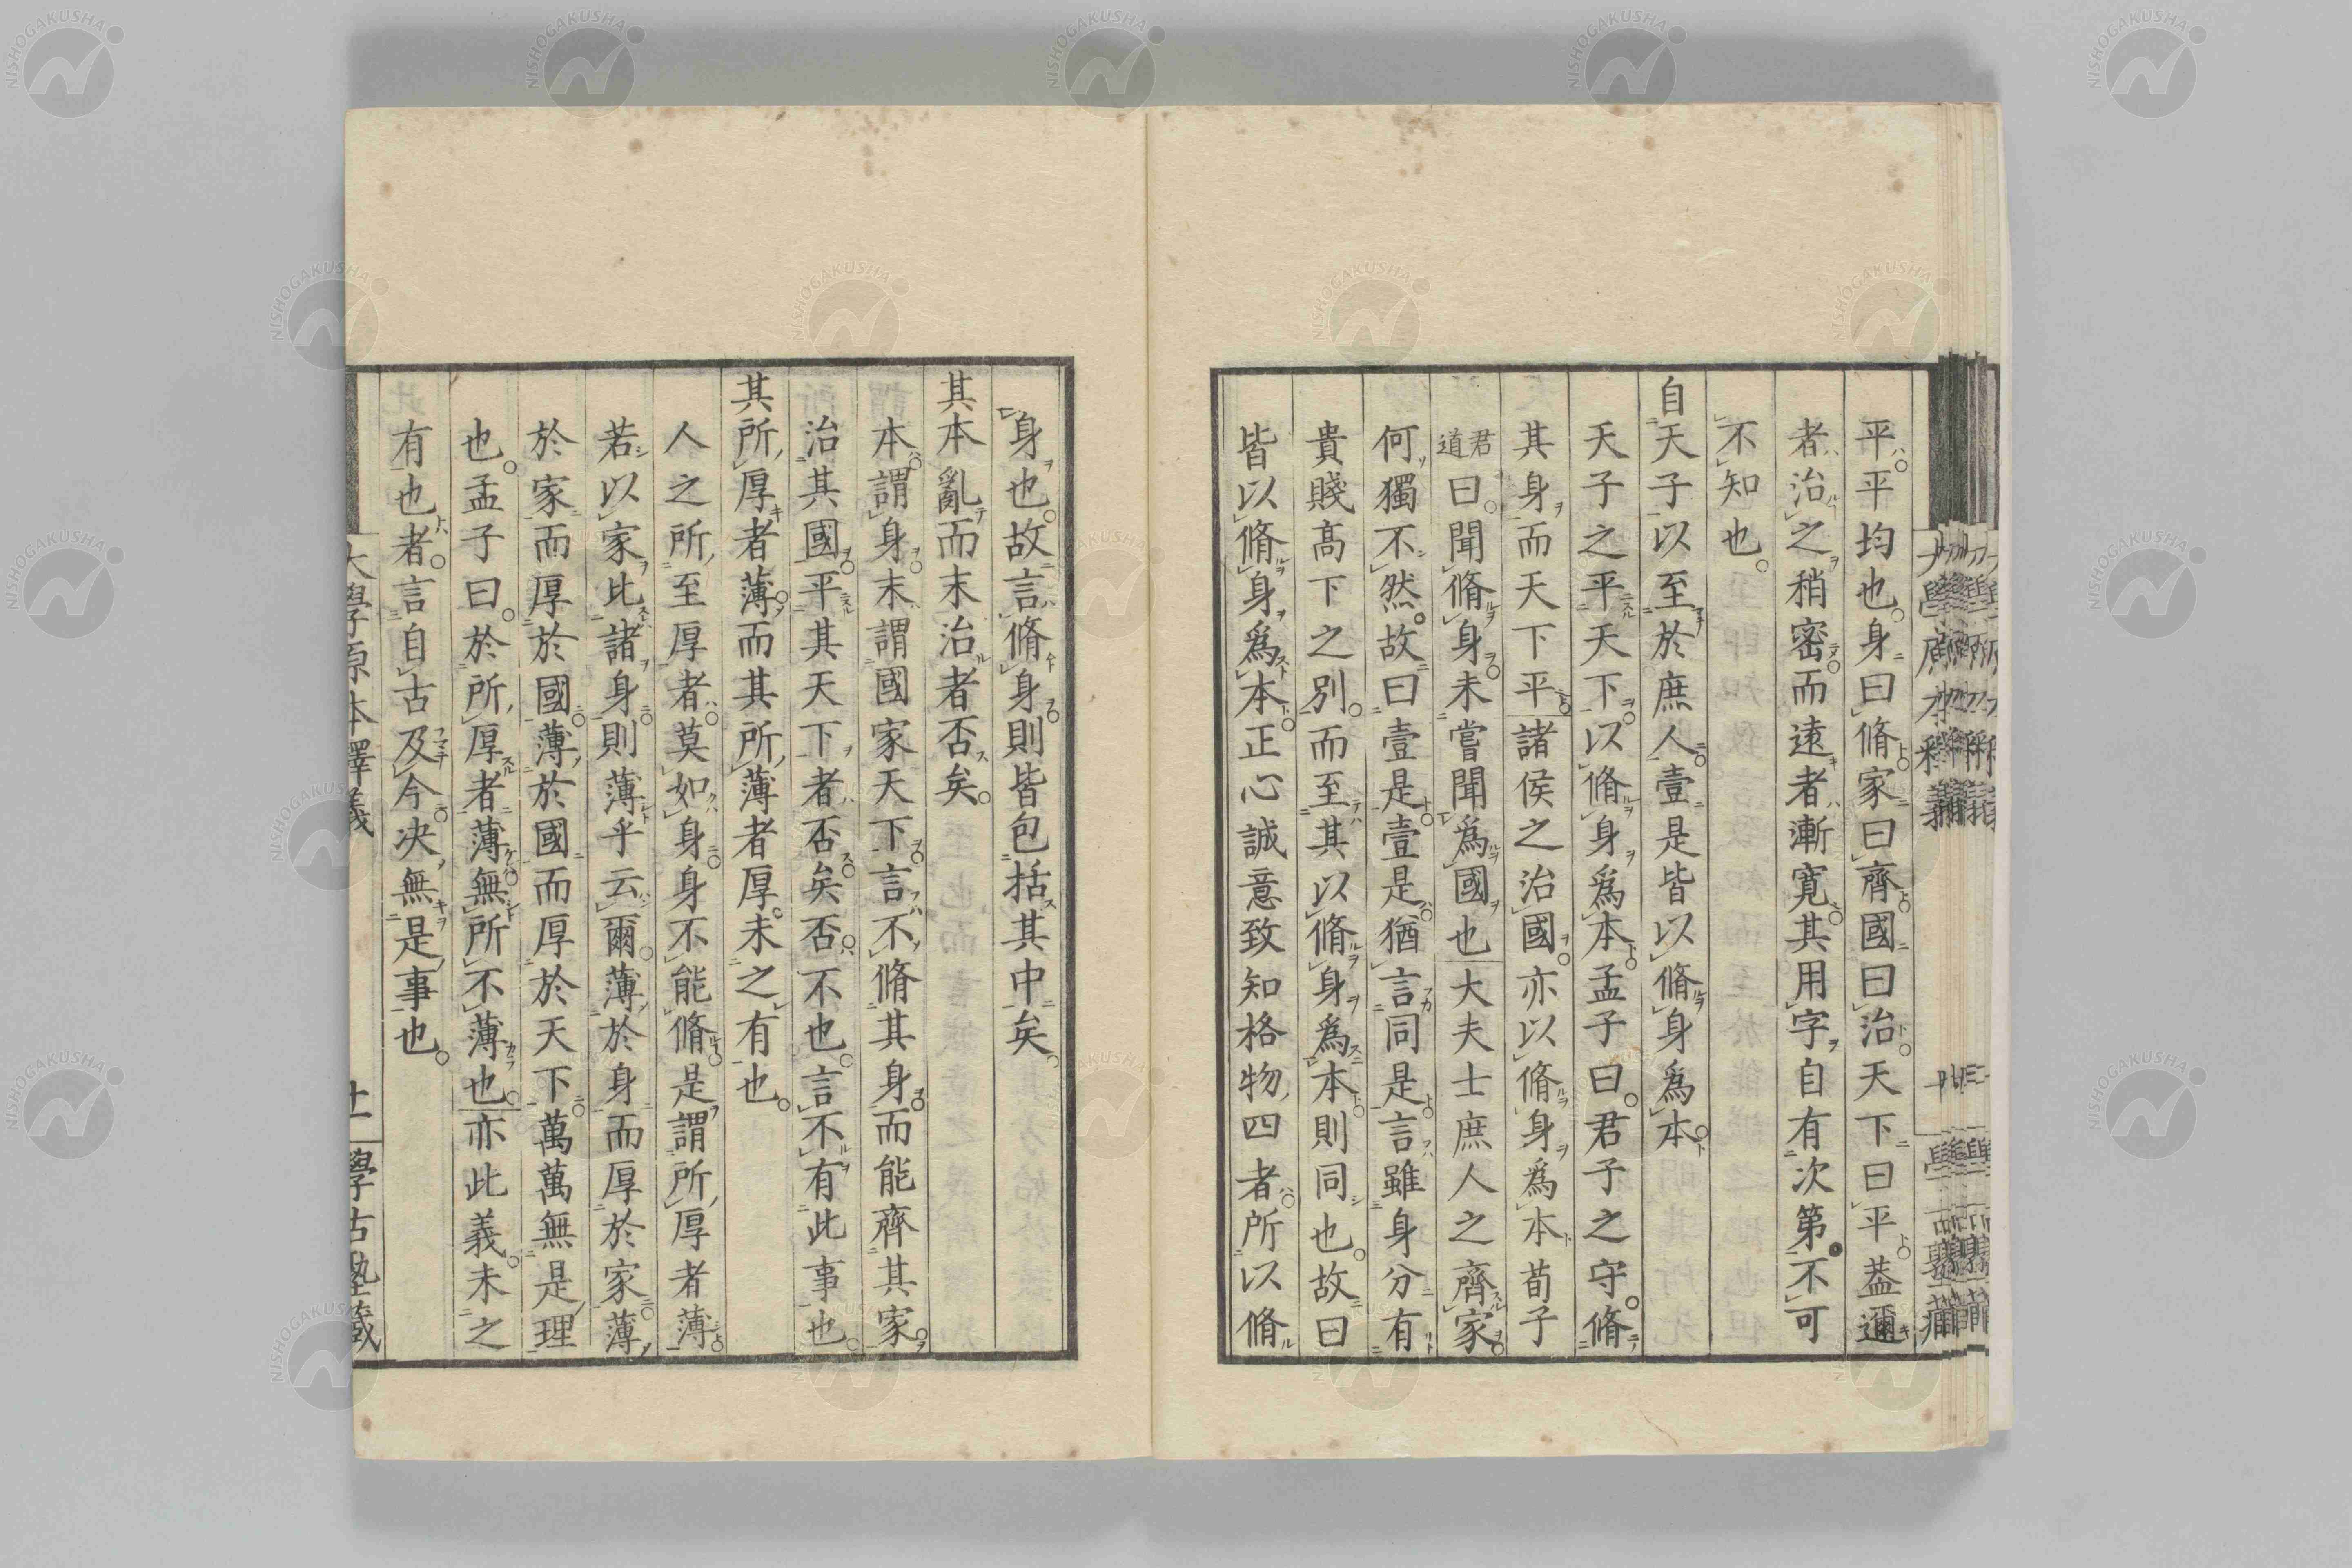 平平均也身曰脩家曰齊國曰治天下曰平葢邇
者治之稍密而遠者漸寬其用字自有次第不可
不知也
自天子以至於庶人壹是皆以脩身爲本
天子之平天下以脩身爲本孟子曰君子之守脩
其身而天下平諸侯之治國亦以脩身爲本荀子
君道曰聞脩身未嘗聞爲國也大夫士庶人之齊家
何獨不然故曰壹是壹是猶言同是言雖身分有
貴賤高下之別而至其以脩身爲本則同也故曰
皆以脩身爲本正心誠意致知格物四者所以脩
身也故言脩身則皆包括其中矣
其本亂而末治者否矣
本謂身末謂國家天下言不脩其身而能齊其家
治其國平其天下者否矣否不也言不有此事也
其所厚者薄而其所薄者厚未之有也
人之所至厚者莫如身身不能脩是謂所厚者薄
若以家比諸身則薄乎云爾薄於身而厚於家薄
於家而厚於國薄於國而厚於天下萬萬無是理
也孟子曰於所厚者薄無所不薄也亦此義未之
有也者言自古及今决無是事也
大學原本釋義
十一
學古塾藏
NISHOGAKUSHA